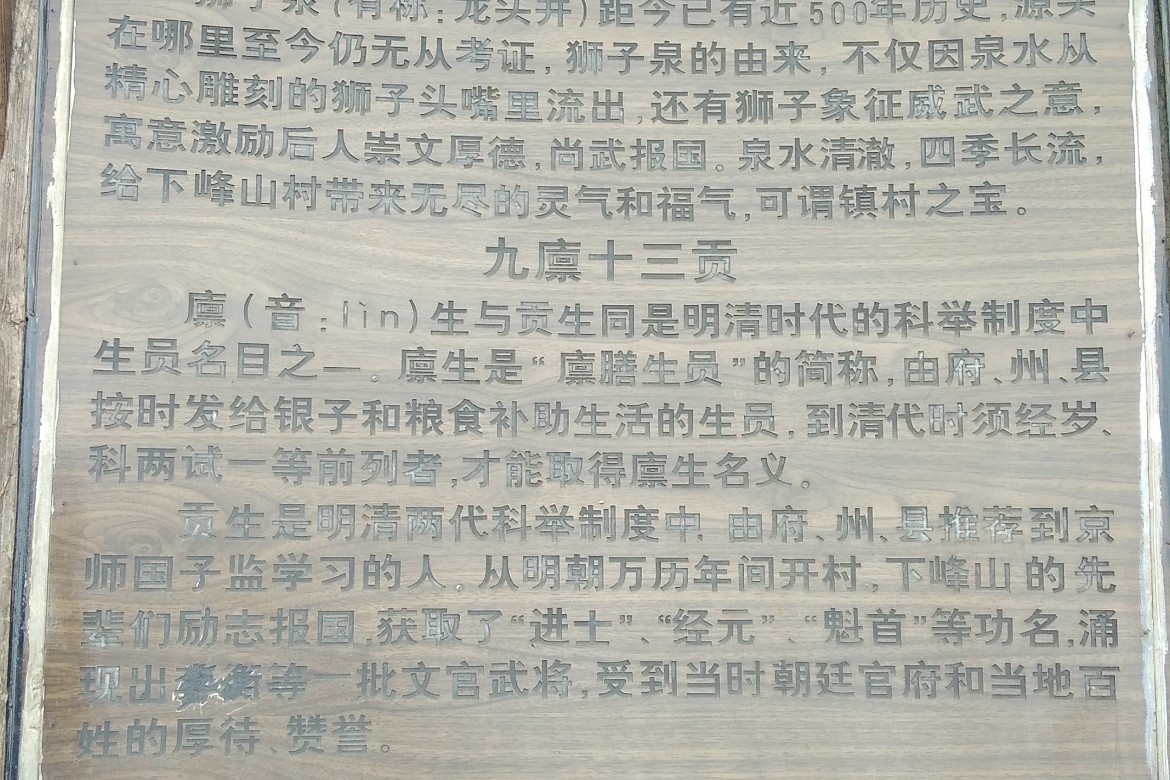 狮子泉（有称：龙头井）距今已有近500年历史，源头
在哪里至今仍无从考证，狮子泉的由来，不仅因泉水从
精心雕刻的狮子头嘴里流出，还有狮子象征威武之意，
寓意激励后人崇文厚德，尚武报国。泉水清澈，四季长流，
给下峰山村带来无尽的灵气和福气，可谓镇村之宝。
九廪十三贡
廪（音：lìn）生与贡生同是明清时代的科举制度中
生员名目之一。廪生是“廪膳生员”的简称，由府、州、县
按时发给银子和粮食补助生活的生员，到清代时须经岁、
科两试一等前列者，才能取得廪生名义。
贡生是明清两代科举制度中，由府、州、县推荐到京
师国子监学习的人。从明朝万历年间开村，下峰山的先
辈们励志报国，获取了“进士”、“经元”、“魁首”等功名，涌
现出等一批文官武将，受到当时朝廷官府和当地百
姓的厚待、赞誉。